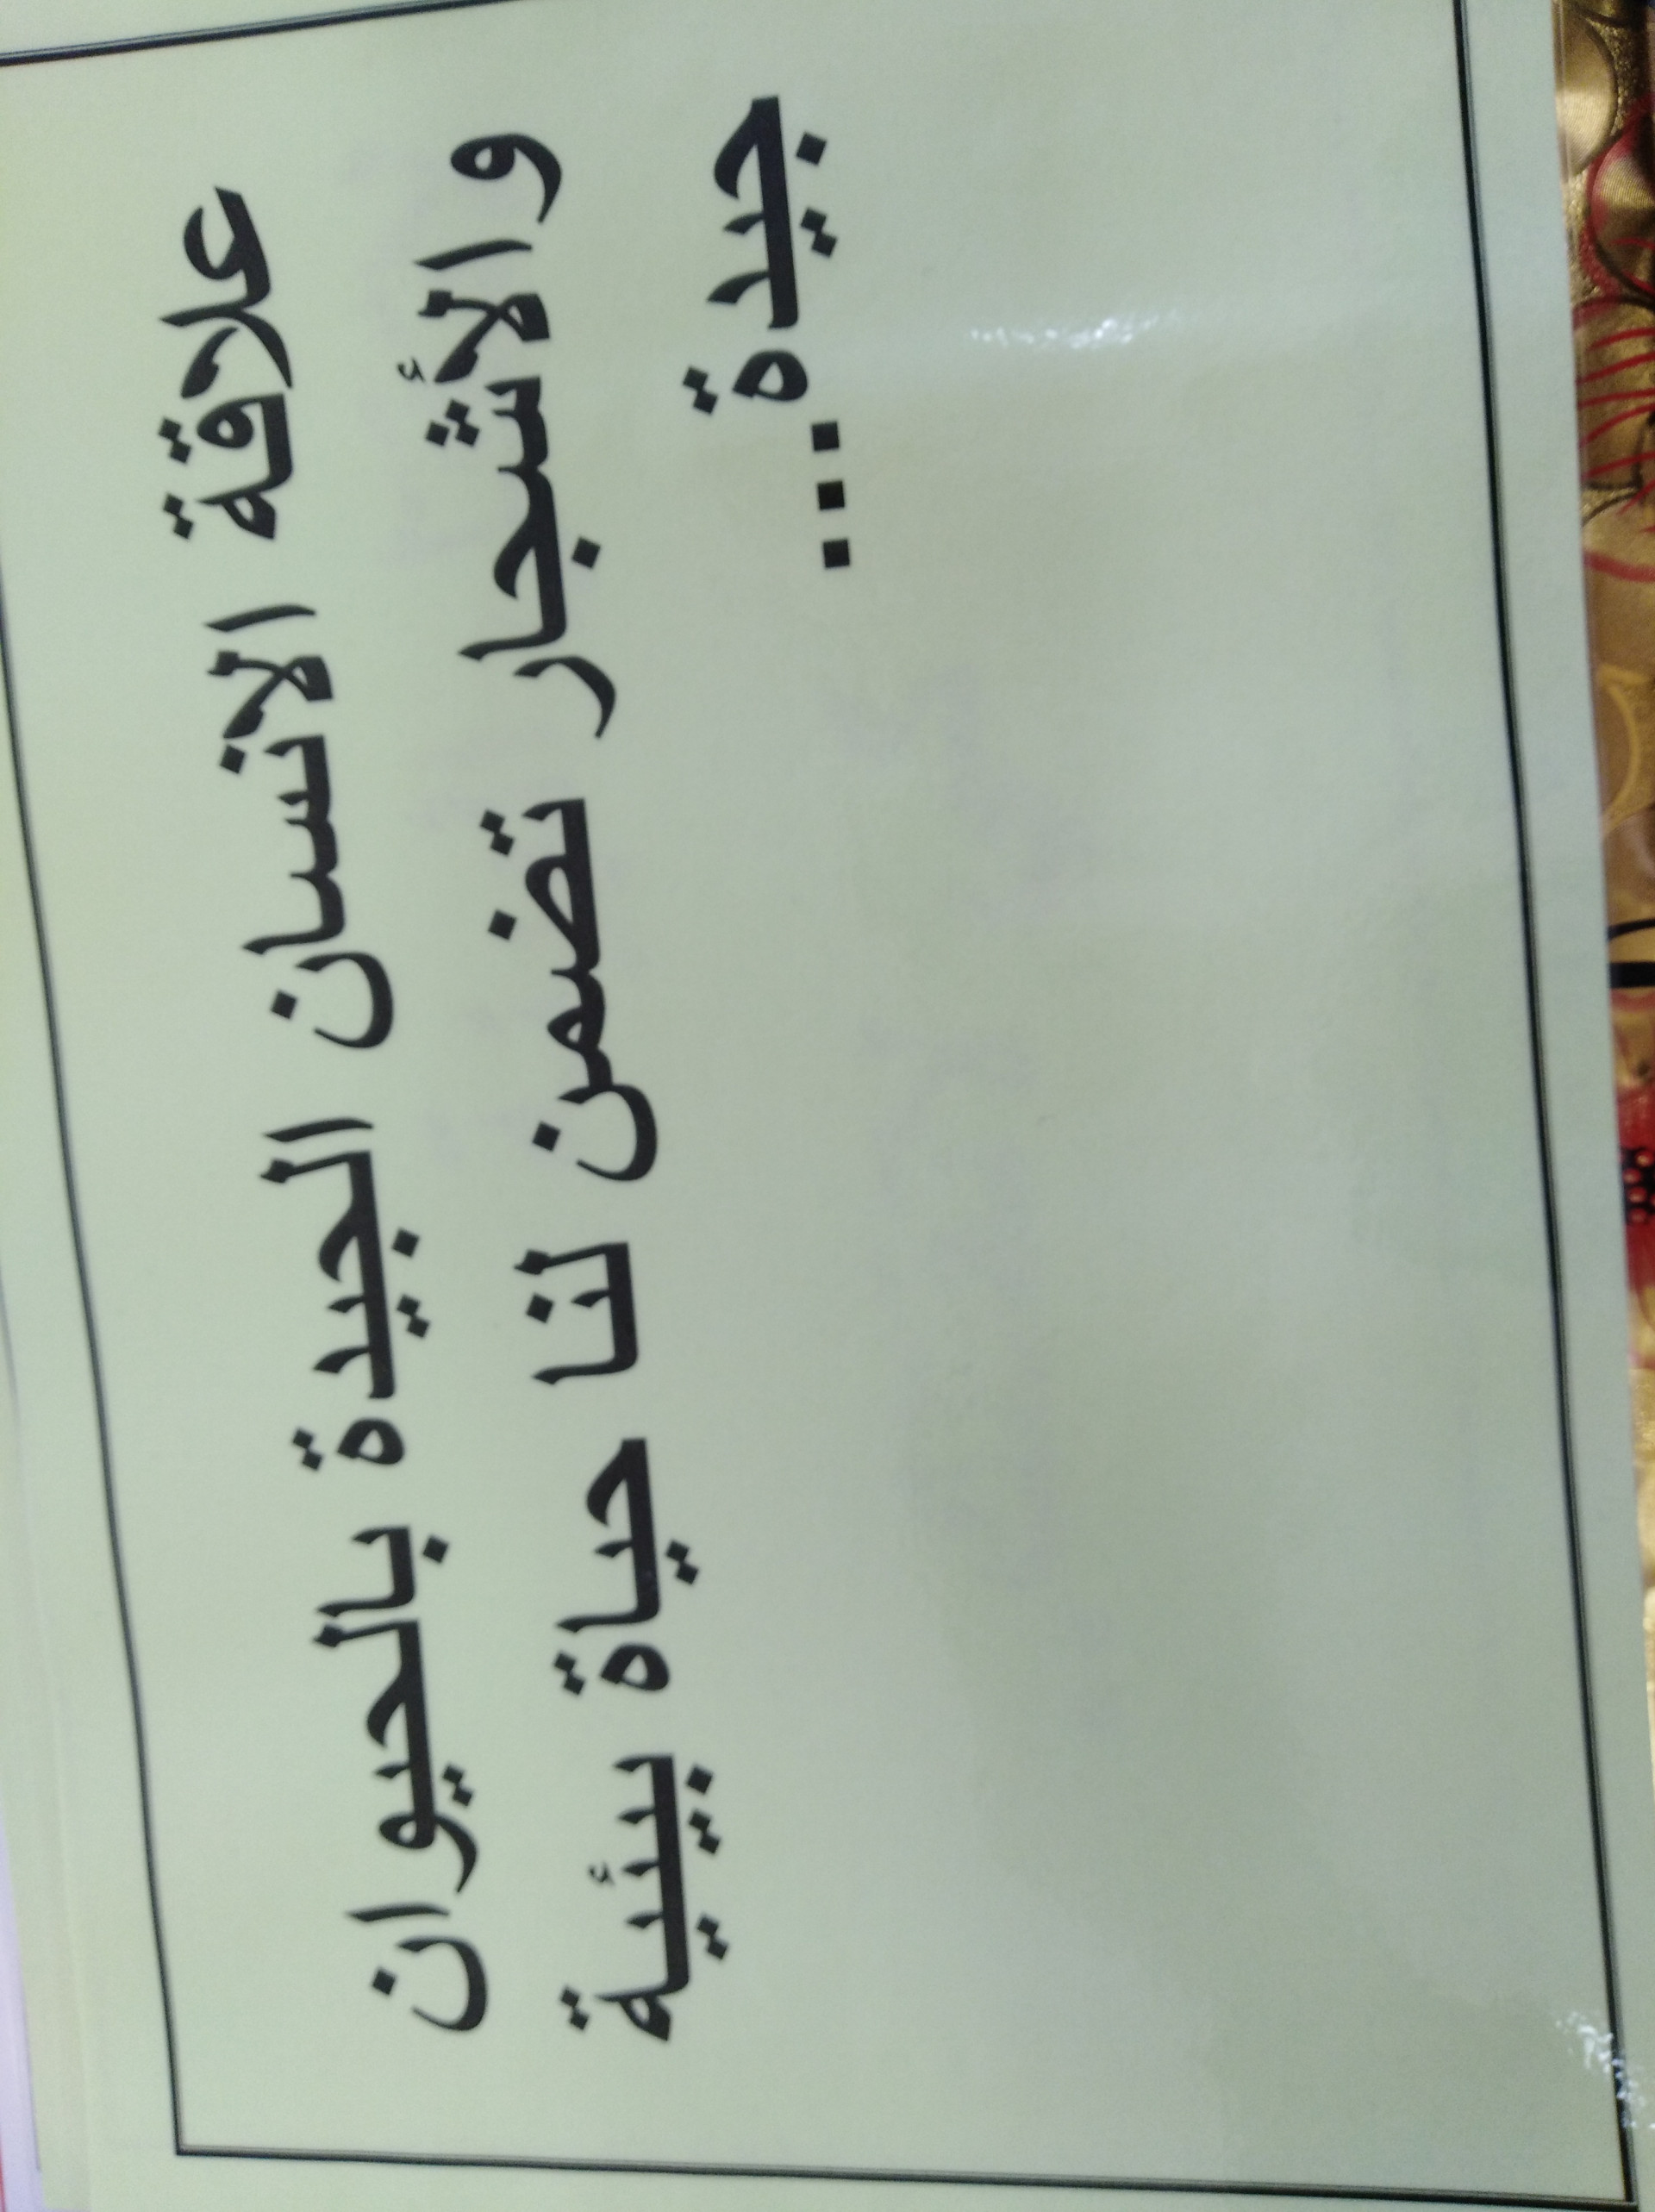 علاقة الانسان الجيدة بالحيوان
و الأشجار تضمن لنا حياة بيئية
جيدة...